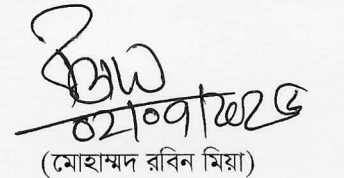 ০২।০৭।২০২৫
(মোহাম্মদ রবিন মিয়া)